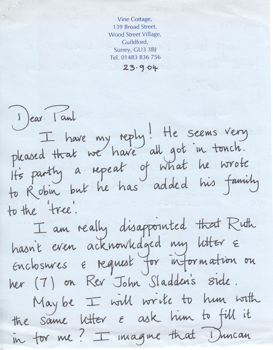 Vine Cottage,
139 Broad Street,
Wood Street Village,
Guildford,
Surrey, GU3 3BJ
Tel. 01483 836 756
23.9.04
Dear Paul
I have my reply! He seems very
pleased that we have all got in touch.
It's partly a repeat of what he wrote
to Robin but he has added his family
to the 'tree'.
I am really disappointed that Ruth
hasn't even acknowledged my letter &
enclosures & request for information on
her (?) on Rev John Sladden's side.
Maybe I will write to him with
the same letter & ask him to fill it
in for me? I imagine that Duncan